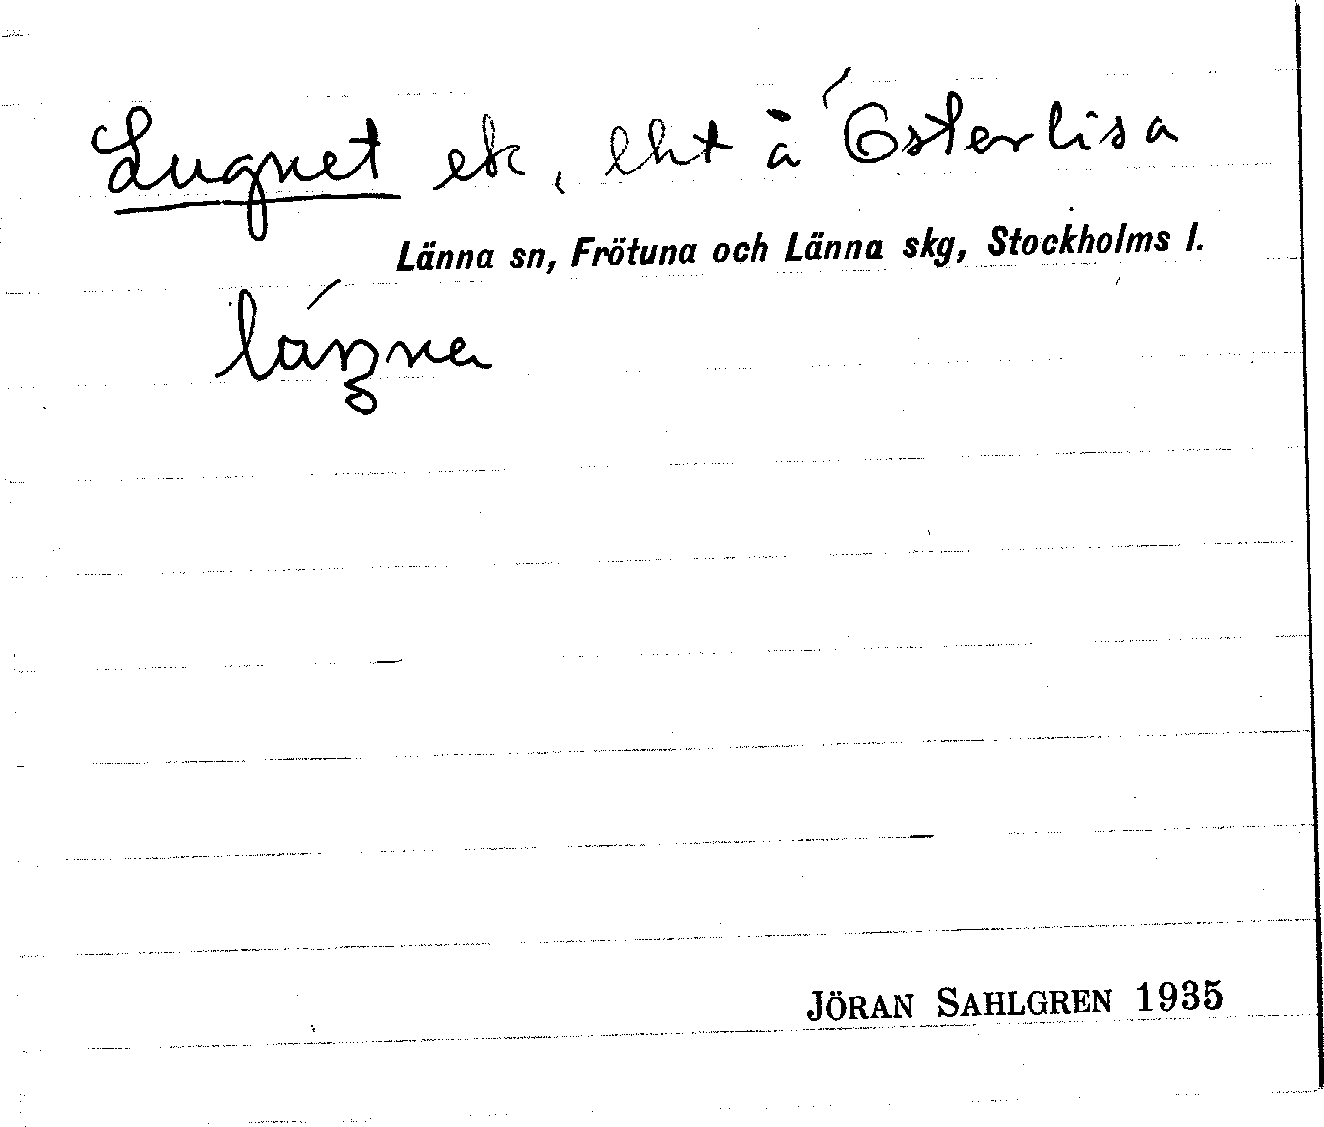 Lugnet ek, lht å Österlisa
Länna sn, Frötuna och Länna skg, Stockholms l.
JÖRAN SAHLGREN 1935